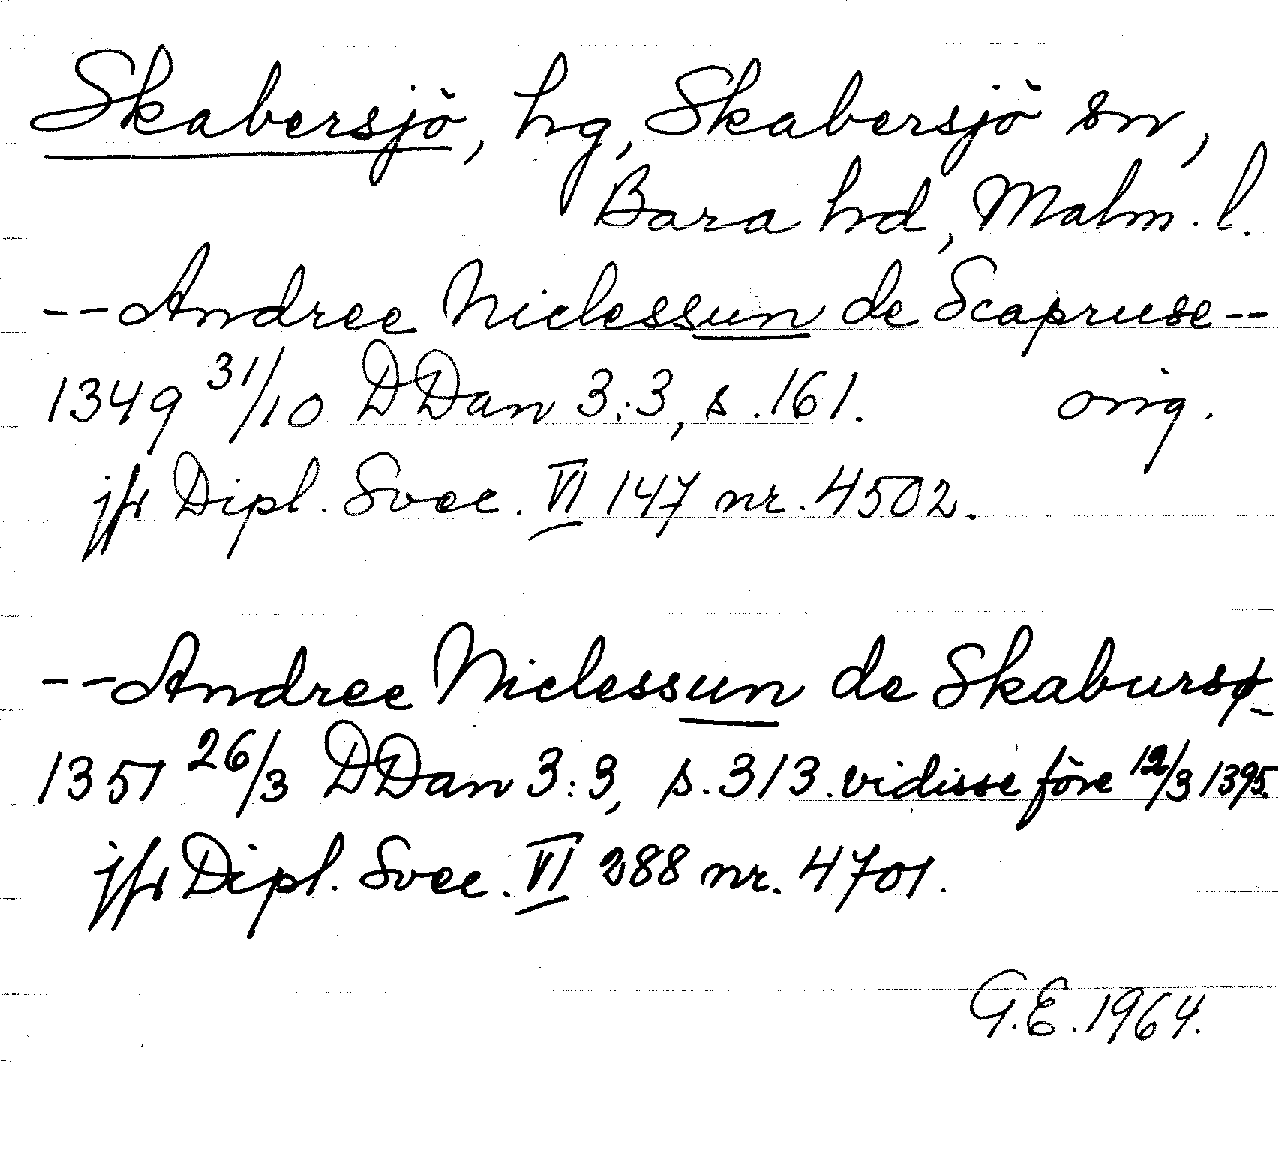 Skabersjö, hg, Skabersjö sn,
Bara hd, Malm. l.
--Andree Niclessun de Scapruse--
1349 31/10 DDan 3:3, s. 161. orig.
jfr Dipl. Svec. VI 147 nr. 4502.
--Andree Niclessun de Skabursø-
1351 26/3 DDan 3:3, s. 313. vidisse före 12/3 1395.
jfr Dipl. Svec. VI 288 nr. 4701.
G.E. 1964.